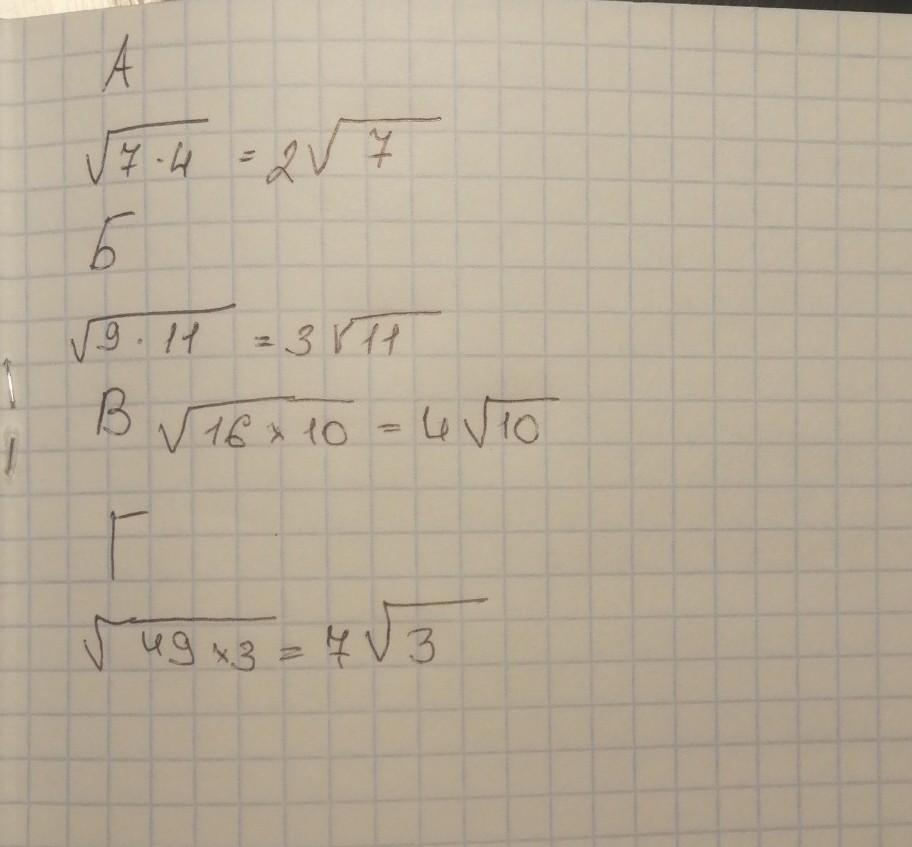 А
√7·4 = 2√7
Б
√9·11 = 3√11
В √16×10 = 4√10
Г
√49×3 = 7√3